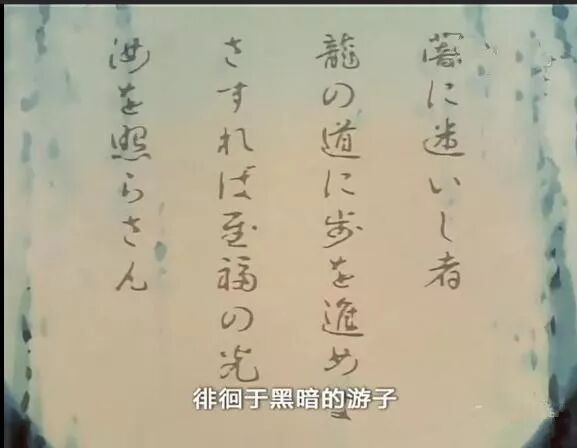 闇に迷いし者
龍の道に歩を進め
さすれば至福の光
汝を照らさん
徘徊于黑暗的游子